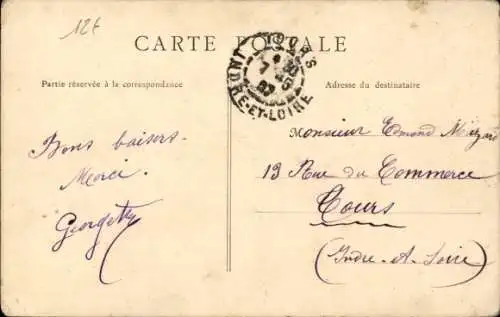 12€
CARTE POSTALE
TOURS
INDRE-ET-LOIRE
Partie réservée à la correspondance
Adresse du destinataire
Bons baisers.
Merci.
Georgette
Monsieur Edmond
13 Rue du Commerce
Tours
(Indre-&-Loire)